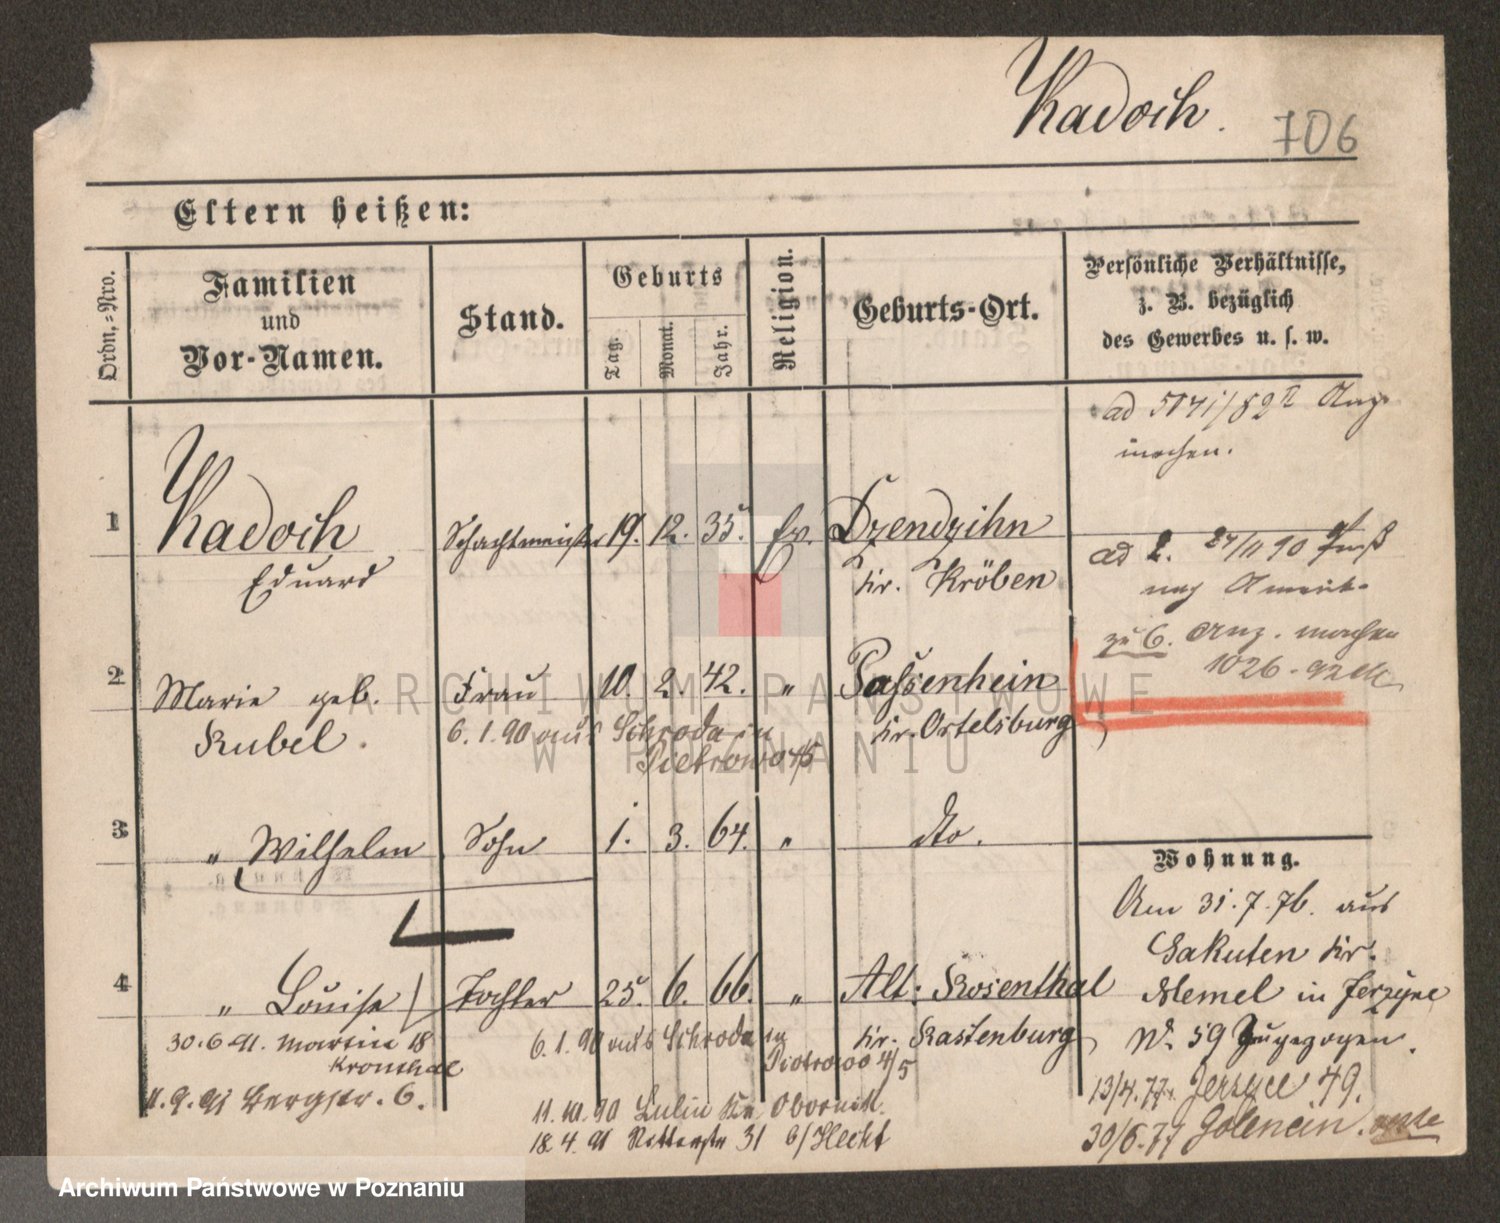 Kadoch.
706
Eltern heißen:
Ordn.-Nro.
Familien
und
Vor-Namen.
Stand.
Geburts
Tag.
Monat.
Jahr.
Religion.
Geburts-Ort.
Persönliche Verhältnisse,
z. B. bezüglich
des Gewerbes u. s. w.
machen.
1 Kadoch Schachtmeister 19. 12. 35. Ev. Dzendzihn
Eduard Kr. Kröben
ad 2. 27/11 90
nach
zu 6. Anz. machen
1026.
2 Marie geb. Frau 10. 2. 42. " Passenhein
Kubel. Kr. Ortelsburg
6.1.90 aus Schroda in
Pietrowo 4/5
3 " Wilhelm Sohn 1. 3. 64. " dto.
Wohnung.
Am 31.7.76. aus
Bakuten Kr.
Memel in Jerzyce
No. 59 Zugezogen.
13/4.77. Jerzyce 49.
30/6.77 Golencin.
4 " Louise Tochter 25. 6. 66. " Alt: Rosenthal
Kr. Rastenburg
30.6.91. Martin 18
Kronthal
11.9.91 Bergstr. 6.
6.1.90 aus Schroda in
Piotrowo 4/5
11.10.90 Lulin Kr. Obornik.
18.4.91 Ritterstr 31 b/Hecht
ARCHIWUM PAŃSTWOWE
W POZNANIU
Archiwum Państwowe w Poznaniu